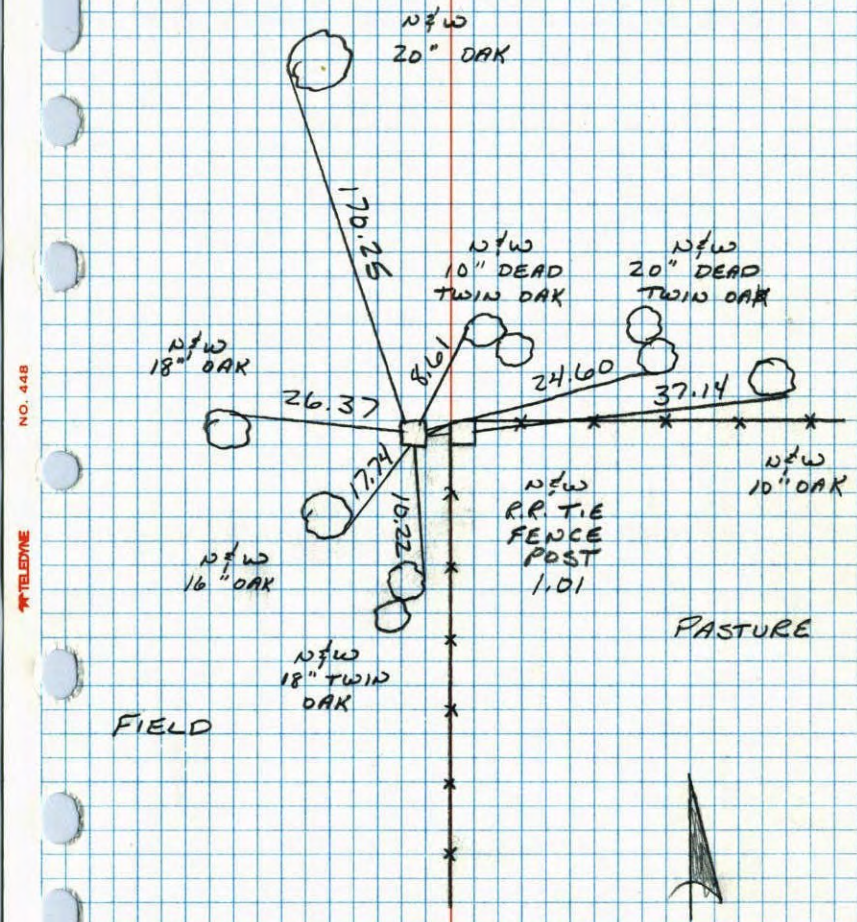 N&W
20" OAK
170.25
N&W
10" DEAD
TWIN OAK
N&W
20" DEAD
TWIN OAK
N&W
18" OAK
8.61
24.60
37.14
26.37
17.74
10.22
N&W
10" OAK
N&W
R.R. TIE
FENCE
POST
1.01
N&W
16" OAK
N&W
18" TWIN
OAK
PASTURE
FIELD
NO. 448
TELEDYNE